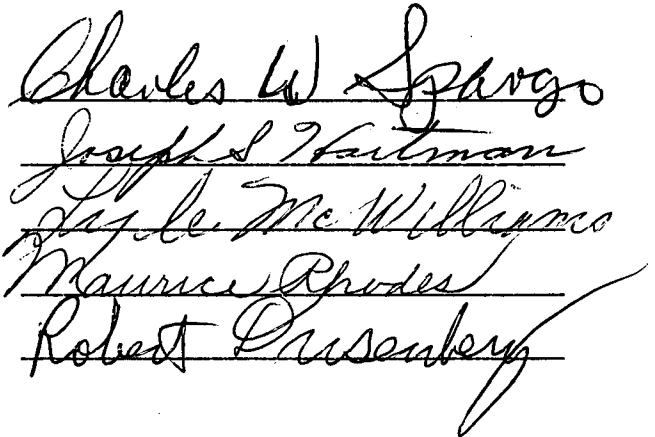 Charles W Spargo
Joseph S Hartman
Lyle McWilliams
Maurice Rhodes
Robert Dusenbery